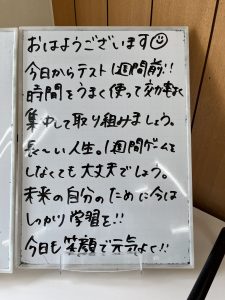 おはようございます☺
今日からテスト1週間前!!
時間をうまく使って効率よく
集中して取り組みましょう。
長〜い人生。1週間ゲームを
しなくても大丈夫でしょう。
未来の自分のために今は
しっかり学習を!!
今日も笑顔で元気よく!!